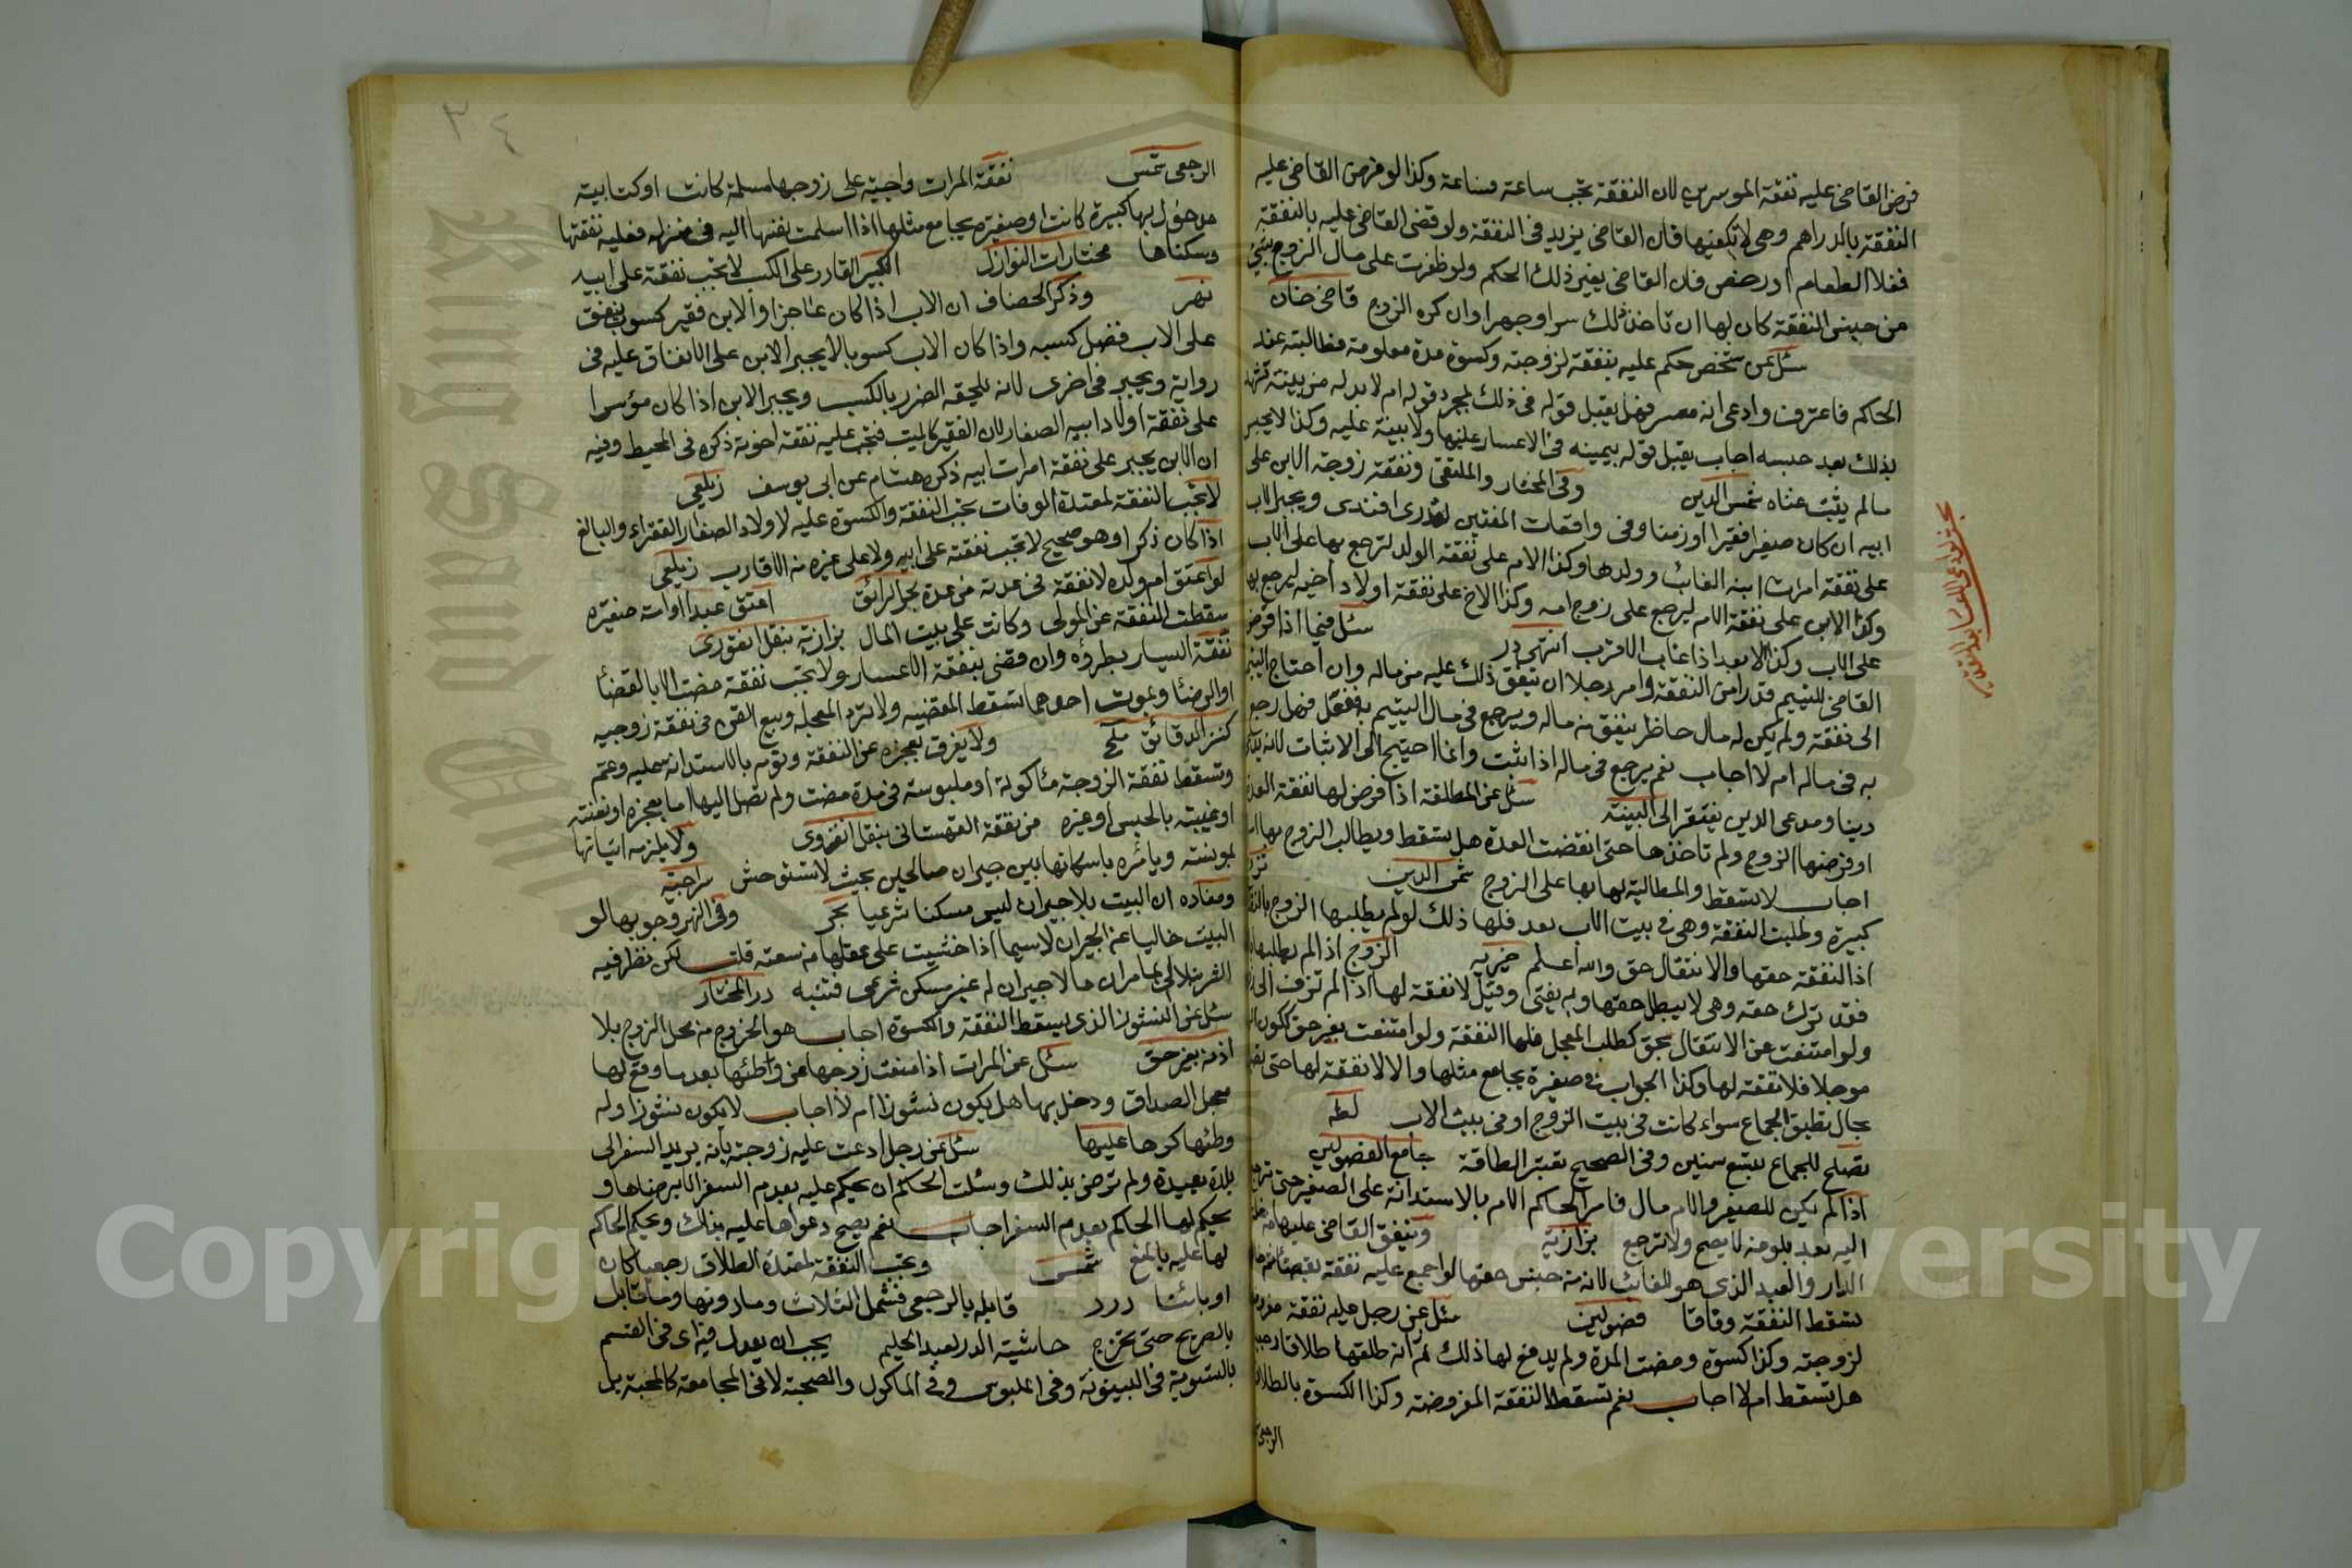 فرض القاضي عليه نفقة الموسرين لان النفقة تجب ساعة فساعة وكذا لو فرض القاضي عليه
النفقة بالدراهم وهي لا تكفيها فان القاضي يزيد في النفقة ولو قضى القاضي عليه بالنفقة
فغلا الطعام او رخص فان القاضي يغير ذلك الحكم ولو ظفرت على مال الزوج
من جنس النفقة كان لها ان تاخذ ذلك سرا وجهرا وان كره الزوج قاضي خان
سئل عن شخص حكم عليه بنفقة لزوجته وكسوة مدة معلومة فطالبته عند
الحاكم فاعترف وادعى انه معسر فهل يقبل قوله في ذلك بمجرد قوله ام لا بد له من بينة
بذلك بعد حبسه اجاب يقبل قوله بيمينه في الاعسار عليها ولا بينة عليه وكذا لا يجبر
مالم يثبت غناه شمس الدين وفي المختار والملتقى ونفقة زوجة الابن على
ابيه ان كان صغيرا فقيرا او زمنا وفي واقعات المفتين لقدري افندى ويجبر الاب
على نفقة امرات ابنه الغائب وولدها وكذا الام على نفقة الولد لترجع بها على الاب
وكذا الابن على نفقة الام ليرجع على زوج امه وكذا الاخ على نفقة اولاد اخيه ليرجع بها
على الاب وكذا الابعد اذا غاب الاقرب انتهى در سئل فيما اذا فرض
القاضي لليتيم قدرا من النفقة وامر رجلا ان ينفق ذلك عليه من ماله وان احتاج اليتيم
الى نفقة ولم يكن له مال حاظر ينفق من ماله ويرجع في مال اليتيم ففعل فهل رجع
به في ماله ام لا اجاب نعم يرجع في ماله اذا اثبت وانما احتيج الى الاثبات لانه
دينا ومدعى الدين يفتقر الى البينة سئل عن المطلقة اذا فرض لها نفقة العدة
او فرضها الزوج ولم تاخذها حتى انقضت العدة هل يسقط ويطالب الزوج بها
اجاب لا تسقط والمطالبة لها بها على الزوج شمس الدين
كبيرة وطلبت النفقة وهي في بيت الاب بعد فلها ذلك لو لم يطلبها الزوج
اذ النفقة حقها والانتقال حق والله اعلم خيريه الزوج اذا لم يطلبها
فقد ترك حقه وهي لا يبطل حقها وبه يفتى وقيل لا نفقة لها اذا لم تزف
ولو امتنعت عن الانتقال بحق كطلب المعجل فلها النفقة ولو امتنعت بغير حق ككون
موجلا فلا نفقة لها وكذا الجواب في صغيرة يجامع مثلها والا لا نفقة لها حتى
بحال تطيق الجماع سواء كانت في بيت الزوج او في بيت الاب
تصلح للجماع لتسع سنين وفي الصحيح تعتبر الطاقة جامع الفصولين
اذا لم يكن للصغير والام مال فامر الحاكم الام بالاستدانة على الصغير حتى
اليه بعد بلوغه لا يصح ولا ترجع بزازية وينفق القاضي عليها
الدار والعبد الذي هو للغائب لانه من جنس حقها لو اجمع عليه نفقة
تسقط النفقة وفاقا فصولين سئل عن رجل عليه نفقة
لزوجته وكذا كسوة ومضت المدة ولم يدفع لها ذلك ثم انه طلقها طلاقا
هل تسقط ام لا اجاب نعم تسقط النفقة المفروضة وكذا الكسوة بالطلاق
الرجعي
٣٤
الرجعي شمس نفقة المرات واجبة على زوجها مسلمة كانت او كتابية
مدخول بها كبيرة كانت او صغيرة يجامع مثلها اذا اسلمت نفسها اليه في منزله فعليه نفقتها
وسكناها مختارات النوازل الكبير القادر على الكسب لا تجب نفقة على ابيه
نهر وذكر الخصاف ان الاب اذا كان عاجزا والابن فقير كسوب ينفق
على الاب فضل كسبه واذا كان الاب كسوبا لا يجبر الابن على الانفاق عليه في
رواية ويجبر في اخرى لانه يلحقه الضرر بالكسب ويجبر الابن اذا كان مؤسرا
على نفقة اولاد ابيه الصغار لان الفقير كالميت فتجب عليه نفقة اخوته ذكره في المحيط وفيه
ان الابن يجبر على نفقة امرات ابيه ذكره هشام عن ابي يوسف زيلعي
لا تجب النفقة لمعتدة الوفات تجب النفقة والكسوة عليه لاولاد الصغار الفقراء والبالغ
اذا كان ذكرا وهو صحيح لا تجب نفقته على ابيه ولا على غيره من الاقارب زيلعي
لو اعتق ام ولده لا نفقة في عدته من عدة بحر الرائق اعتق عبدا او امة صغيرة
سقطت النفقة عن المولى وكانت على بيت المال بزازية بنقل انقروى
نفقة اليسار بطروه وان قضى بنفقة الاعسار ولا تجب نفقة مضت الا بالقضأ
او الرضئا وبموت احدهما تسقط المقضيه ولا ترد المعجلة وبيع القن في نفقة زوجيه
كنز الدقائق ولا يفرق بعجزه عن النفقة وتؤمر بالاستدانة عليه وعتم
وتسقط نفقة الزوجة مأكولة او ملبوسة في مدة مضت ولم تصل اليها اما بعجزه او تعنته
او غيبته بالحبس او غيره من نفقة القهستاني بنقل انقروى ولا يلزمه اتيانها
بمونسة ويامره باسكانها بين جيران صالحين بحيث لا تستوحش سراجية
ومفاده ان البيت بلا جيران ليس مسكنا شرعيا بحر وفي النهر وجوبها لو
البيت خاليا عن الجيران لا سيما اذا خشيت على عقلها من سعته قلت لكن نظر فيه
الشرنبلالي بما مر ان ما لا جيران له غير مسكن شرعي فتنبه در المختار
سئل عن النشوز الذي يسقط النفقة والكسوة اجاب هو الخروج من محل الزوج بلا
اذنه بغير حق سئل عن المرات اذا منعت زوجها من واطئها بعد ما وقع لها
معجل الصداق ودخل بها هل يكون نشوزا ام لا اجاب لا يكون نشوزا وله
وطئها كرها عليها سئل عن رجل ادعت عليه زوجته بانه يريد السفر الى
بلدة بعيدة ولم ترض بذلك وسئلت الحكم ان يحكم عليه بعدم السفر الا برضاها و
يحكم لها الحاكم بعدم السفر اجاب نعم يصح دعواها عليه بذلك ويحكم الحاكم
لها عليه بالمنع شمس وتجب النفقة لمعتدة الطلاق رجعيا كان
او بائنا درر قابله بالرجعي فشمل الثلاث ومادونها وما قابل
بالصريح حتى تخرج حاشية الدرر لعبد الحليم يجب ان يعدل فيه اى في القسم
بالتسوية في البيتوتة وفي الملبوس وفي الماكول والصحبة لا في المجامعة كالمحبة بل
Copyright © King Saud University